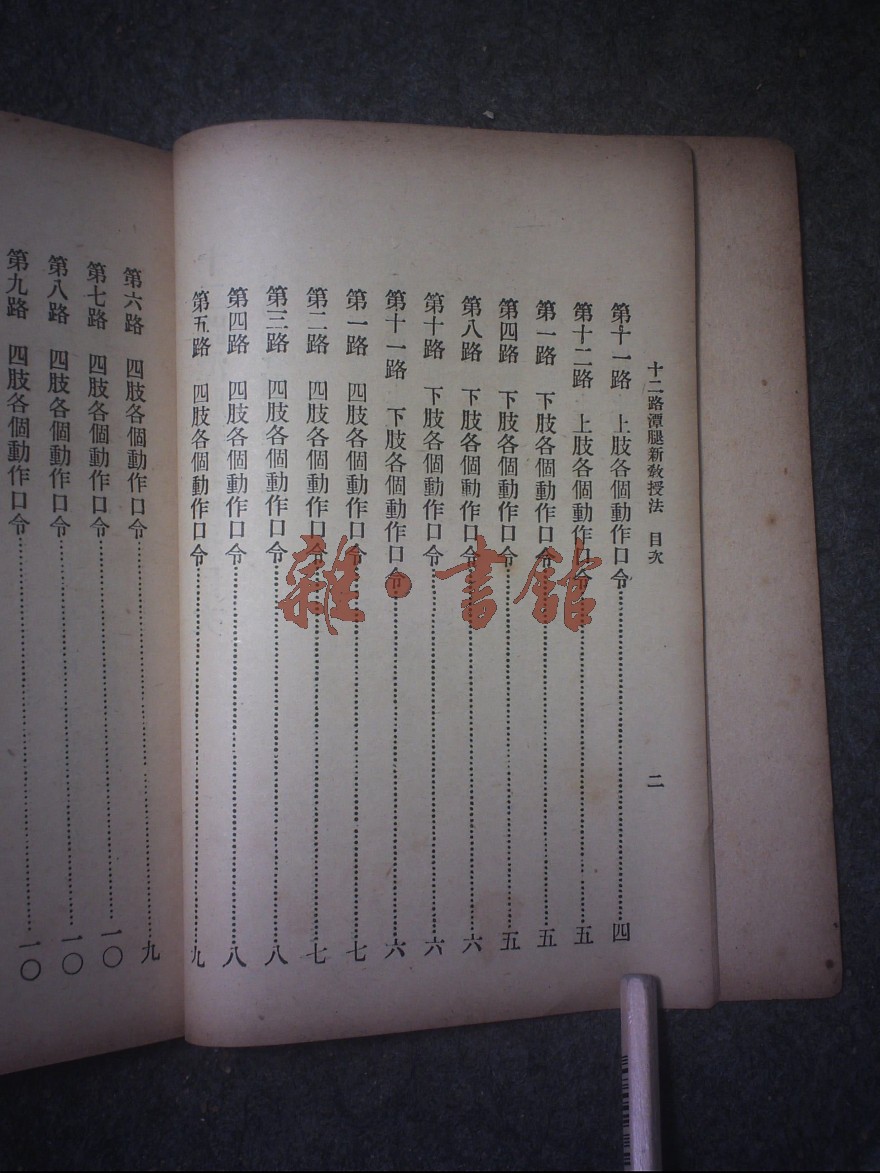 十二路潭腿新教授法　目次　二
第十一路　上肢各個動作口令……四
第十二路　上肢各個動作口令……五
第一路　下肢各個動作口令……五
第四路　下肢各個動作口令……五
第八路　下肢各個動作口令……六
第十路　下肢各個動作口令……六
第十一路　下肢各個動作口令……六
第一路　四肢各個動作口令……七
第二路　四肢各個動作口令……七
第三路　四肢各個動作口令……八
第四路　四肢各個動作口令……八
第五路　四肢各個動作口令……九
第六路　四肢各個動作口令……九
第七路　四肢各個動作口令……一〇
第八路　四肢各個動作口令……一〇
第九路　四肢各個動作口令……一〇
雜·書館